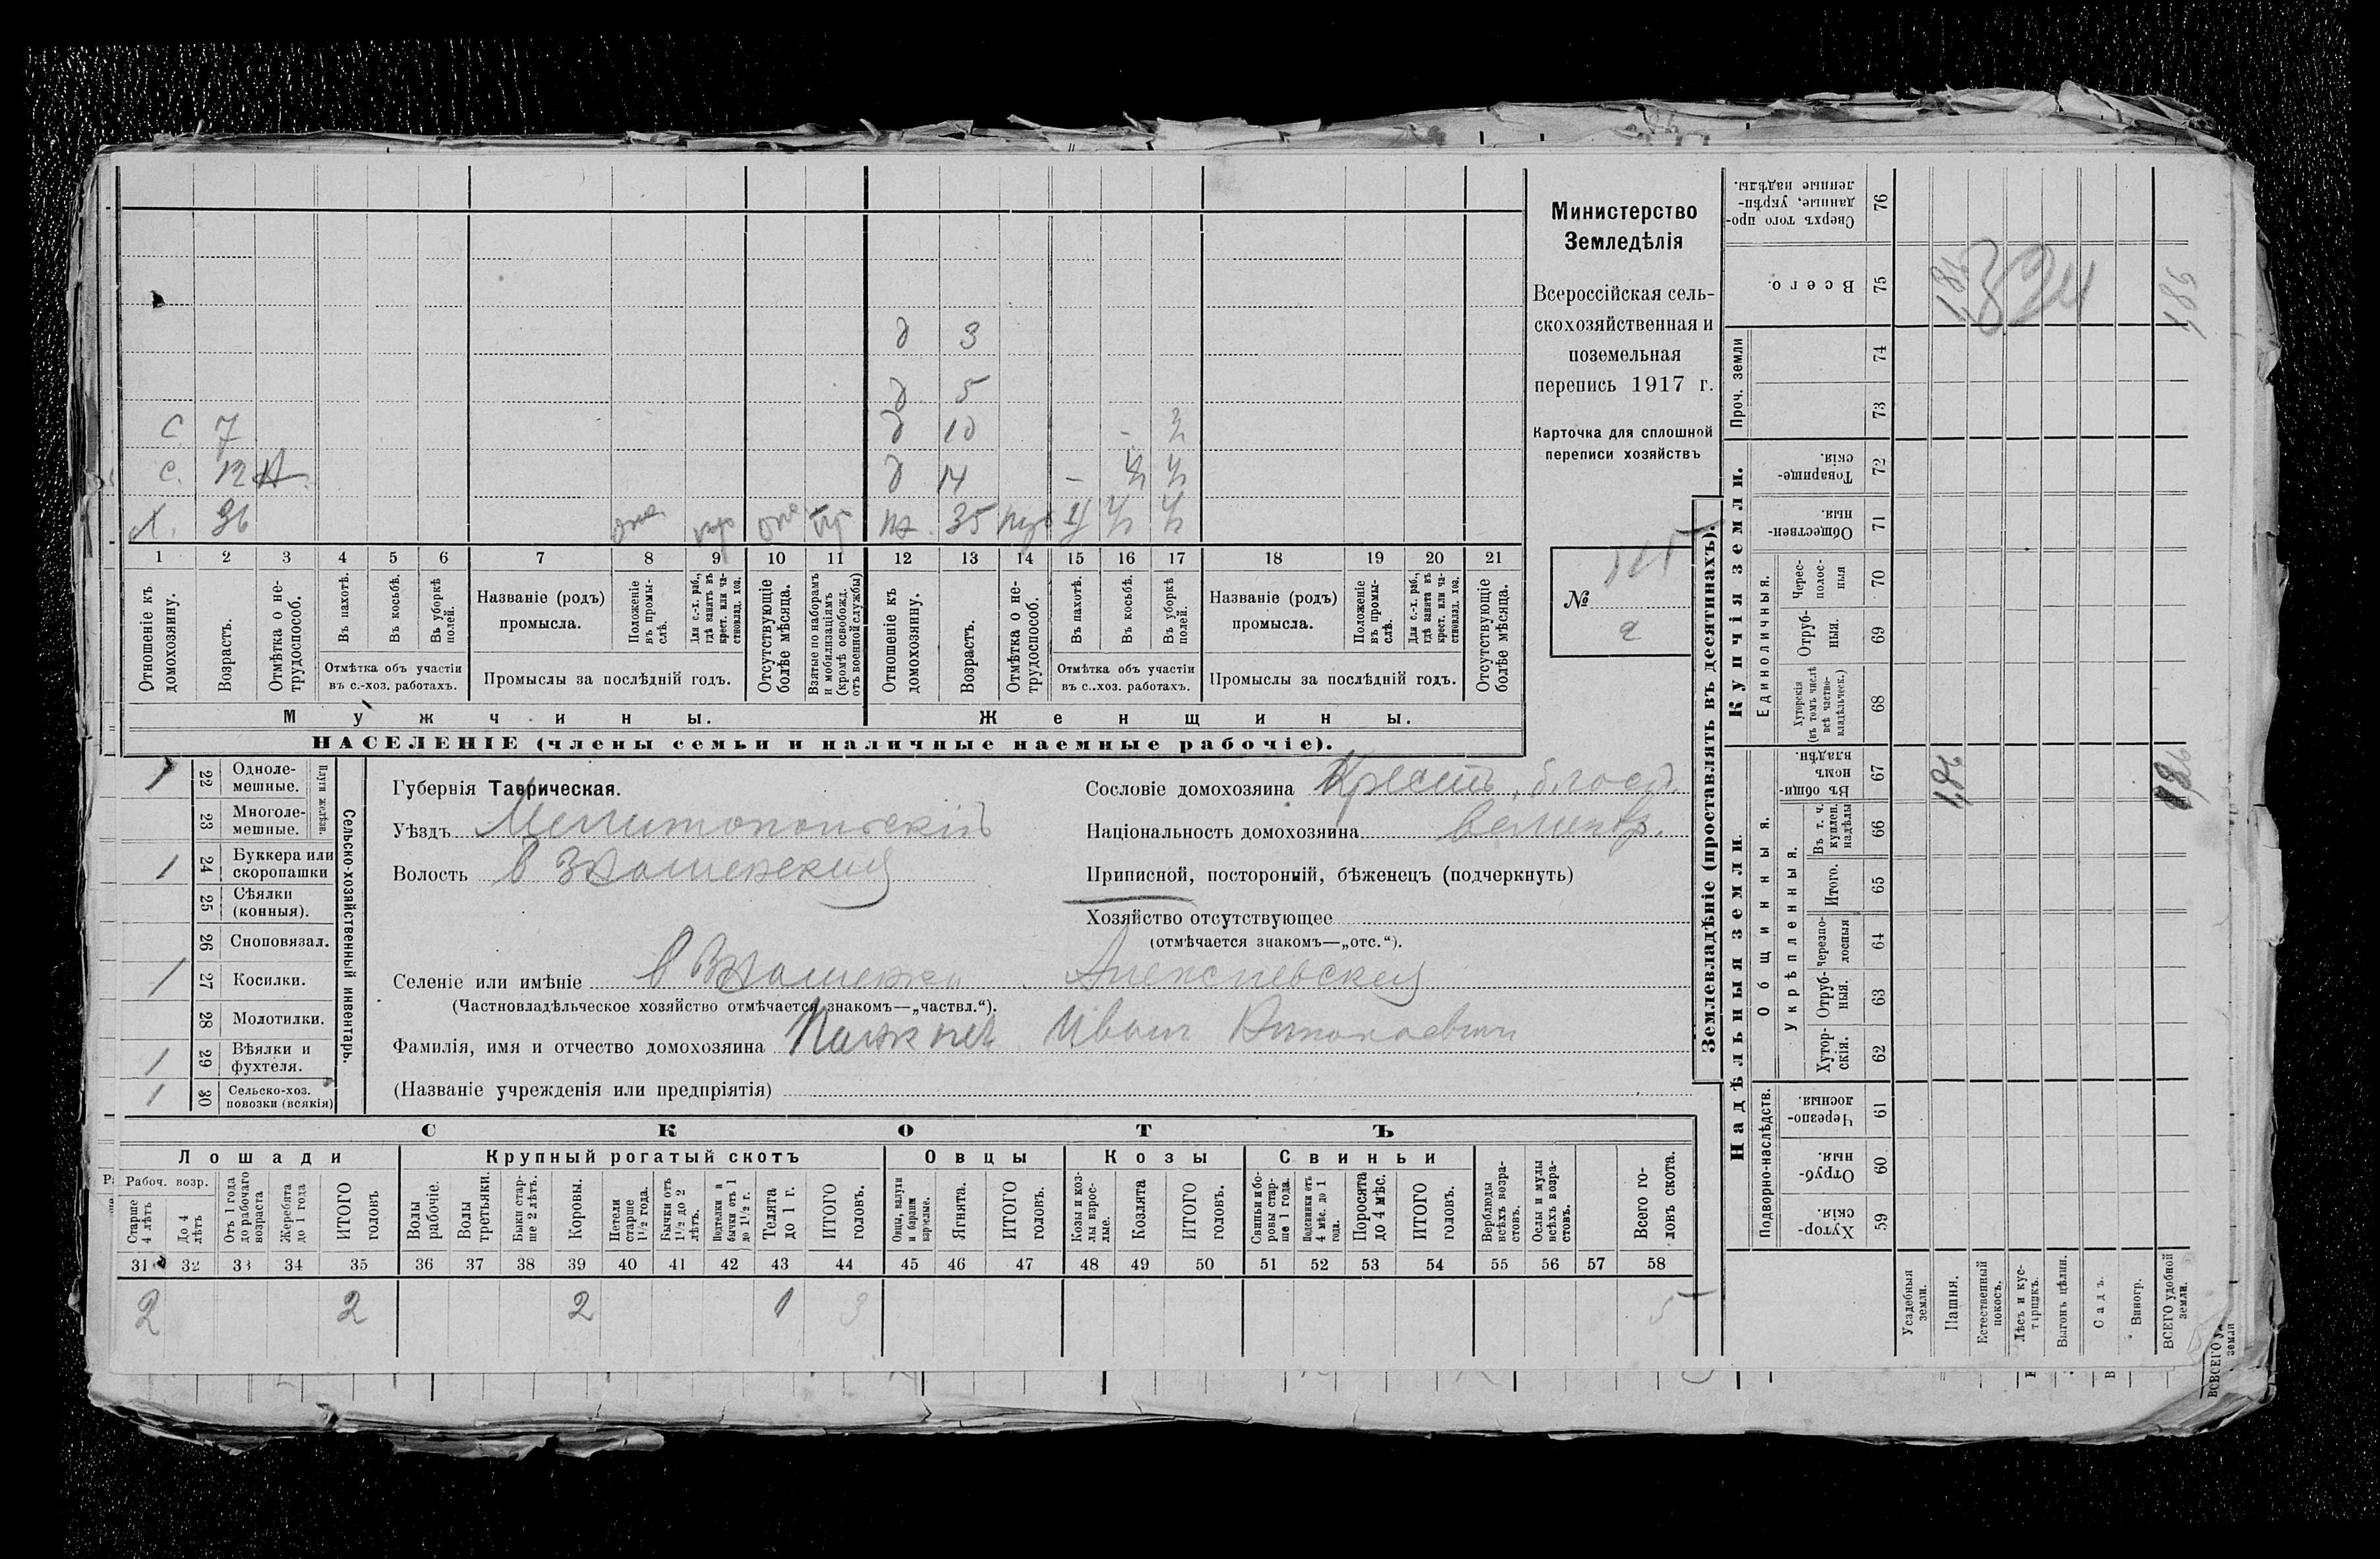 Министерство
Земледѣлія
Всероссійская сель-
скохозяйственная и
поземельная
перепись 1917 г.
Карточка для сплошной
переписи хозяйствъ
№
д 3
д 5
с 7 д 10
с. 12 д 14
36 35
1 2 3 4 5 6 7 8 9 10 11 12 13 14 15 16 17 18 19 20 21
Отношеніе къ домохозяину.
Возрастъ.
Отмѣтка о не-трудоспособ.
Въ пахотѣ.
Въ косьбѣ.
Въ уборкѣ полей.
Отмѣтка объ участіи
въ с.-хоз. работахъ.
Названіе (родъ)
промысла.
Положеніе въ промы-слѣ.
Для с.-х. раб., гдѣ занятъ въ крест. или ча-стновлад. хоз.
Промыслы за послѣдній годъ.
Отсутствующіе болѣе мѣсяца.
Взятые по наборамъ и мобилизаціямъ (кромѣ освобожд. отъ военной службы)
Отношеніе къ домохозяину.
Возрастъ.
Отмѣтка о не-трудоспособ.
Въ пахотѣ.
Въ косьбѣ.
Въ уборкѣ полей.
Отмѣтка объ участіи
въ с.-хоз. работахъ.
Названіе (родъ)
промысла.
Положеніе въ промы-слѣ.
Для с.-х. раб., гдѣ занята въ крест. или ча-стновлад. хоз.
Промыслы за послѣдній годъ.
Отсутствующіе болѣе мѣсяца.
Мужчины. Женщины.
НАСЕЛЕНІЕ (члены семьи и наличные наемные рабочіе).
Сельско-хозяйственный инвентарь.
Плуги желѣзн.
1 22 Одноле-мешные.
23 Многоле-мешные.
1 24 Буккера или скоропашки
25 Сѣялки (конныя).
26 Сноповязал.
1 27 Косилки.
28 Молотилки.
1 29 Вѣялки и фухтеля.
1 30 Сельско-хоз. повозки (всякія)
Губернія Таврическая.
Уѣздъ Мелитопольскій
Волость
Сословіе домохозяина Крест.
Національность домохозяина
Приписной, посторонній, бѣженецъ (подчеркнуть)
Хозяйство отсутствующее
(отмѣчается знакомъ—„отс.“).
Селеніе или имѣніе
(Частновладѣльческое хозяйство отмѣчается знакомъ—„частвл.“).
Фамилія, имя и отчество домохозяина Иван
(Названіе учрежденія или предпріятія)
СКОТЪ
Лошади Крупный рогатый скотъ Овцы Козы Свиньи
Рабоч. возр.
Старше 4 лѣтъ
До 4 лѣтъ
Отъ 1 года до рабочаго возраста
Жеребята до 1 года
ИТОГО головъ
Волы рабочіе.
Волы третьяки.
Быки стар-ше 2 лѣтъ.
Коровы.
Нетели старше 1½ года.
Бычки отъ 1½ до 2 лѣтъ.
Подтелки и бычки отъ 1 до 1½ г.
Телята до 1 г.
ИТОГО головъ.
Овцы, валухи и бараны взрослые.
Ягнята.
ИТОГО головъ.
Козы и коз-лы взрос-лые.
Козлята
ИТОГО головъ.
Свиньи и бо-ровы стар-ше 1 года.
Подсвинки отъ 4 мѣс. до 1 года.
Поросята до 4 мѣс.
ИТОГО головъ.
Верблюды всѣхъ возра-стовъ.
Ослы и мулы всѣхъ возра-стовъ.
Всего го-ловъ скота.
31 32 33 34 35 36 37 38 39 40 41 42 43 44 45 46 47 48 49 50 51 52 53 54 55 56 57 58
2 2 2 1 3 5
Землевладѣніе (проставлять въ десятинахъ).
Надѣльныя земли.
Купчія земли.
Проч. земли
Подворно-наслѣдств.
Общинныя.
Укрѣпленныя.
Единоличныя.
Сверхъ того про-данные, укрѣп-ленные надѣлы. 76
Всего. 75
74
73
Товарище-скія. 72
Обществен-ныя. 71
Черес-полос-ныя 70
Отруб-ныя. 69
Хуторскія (въ томъ числѣ всѣ частно-владѣльческ.) 68
Въ общи-номъ владѣн. 67
Въ т. ч. куплен. надѣлы 66
Итого. 65
Черезпо-лосныя 64
Отруб-ныя. 63
Хутор-скія. 62
Черезпо-лосныя. 61
Отруб-ныя. 60
Хутор-скія. 59
Усадебныя земли.
Пашня.
Естественный покосъ.
Лѣсъ и кус-тарникъ.
Выгонъ цѣлин.
Садъ.
Виногр.
ВСЕГО удобной земли.